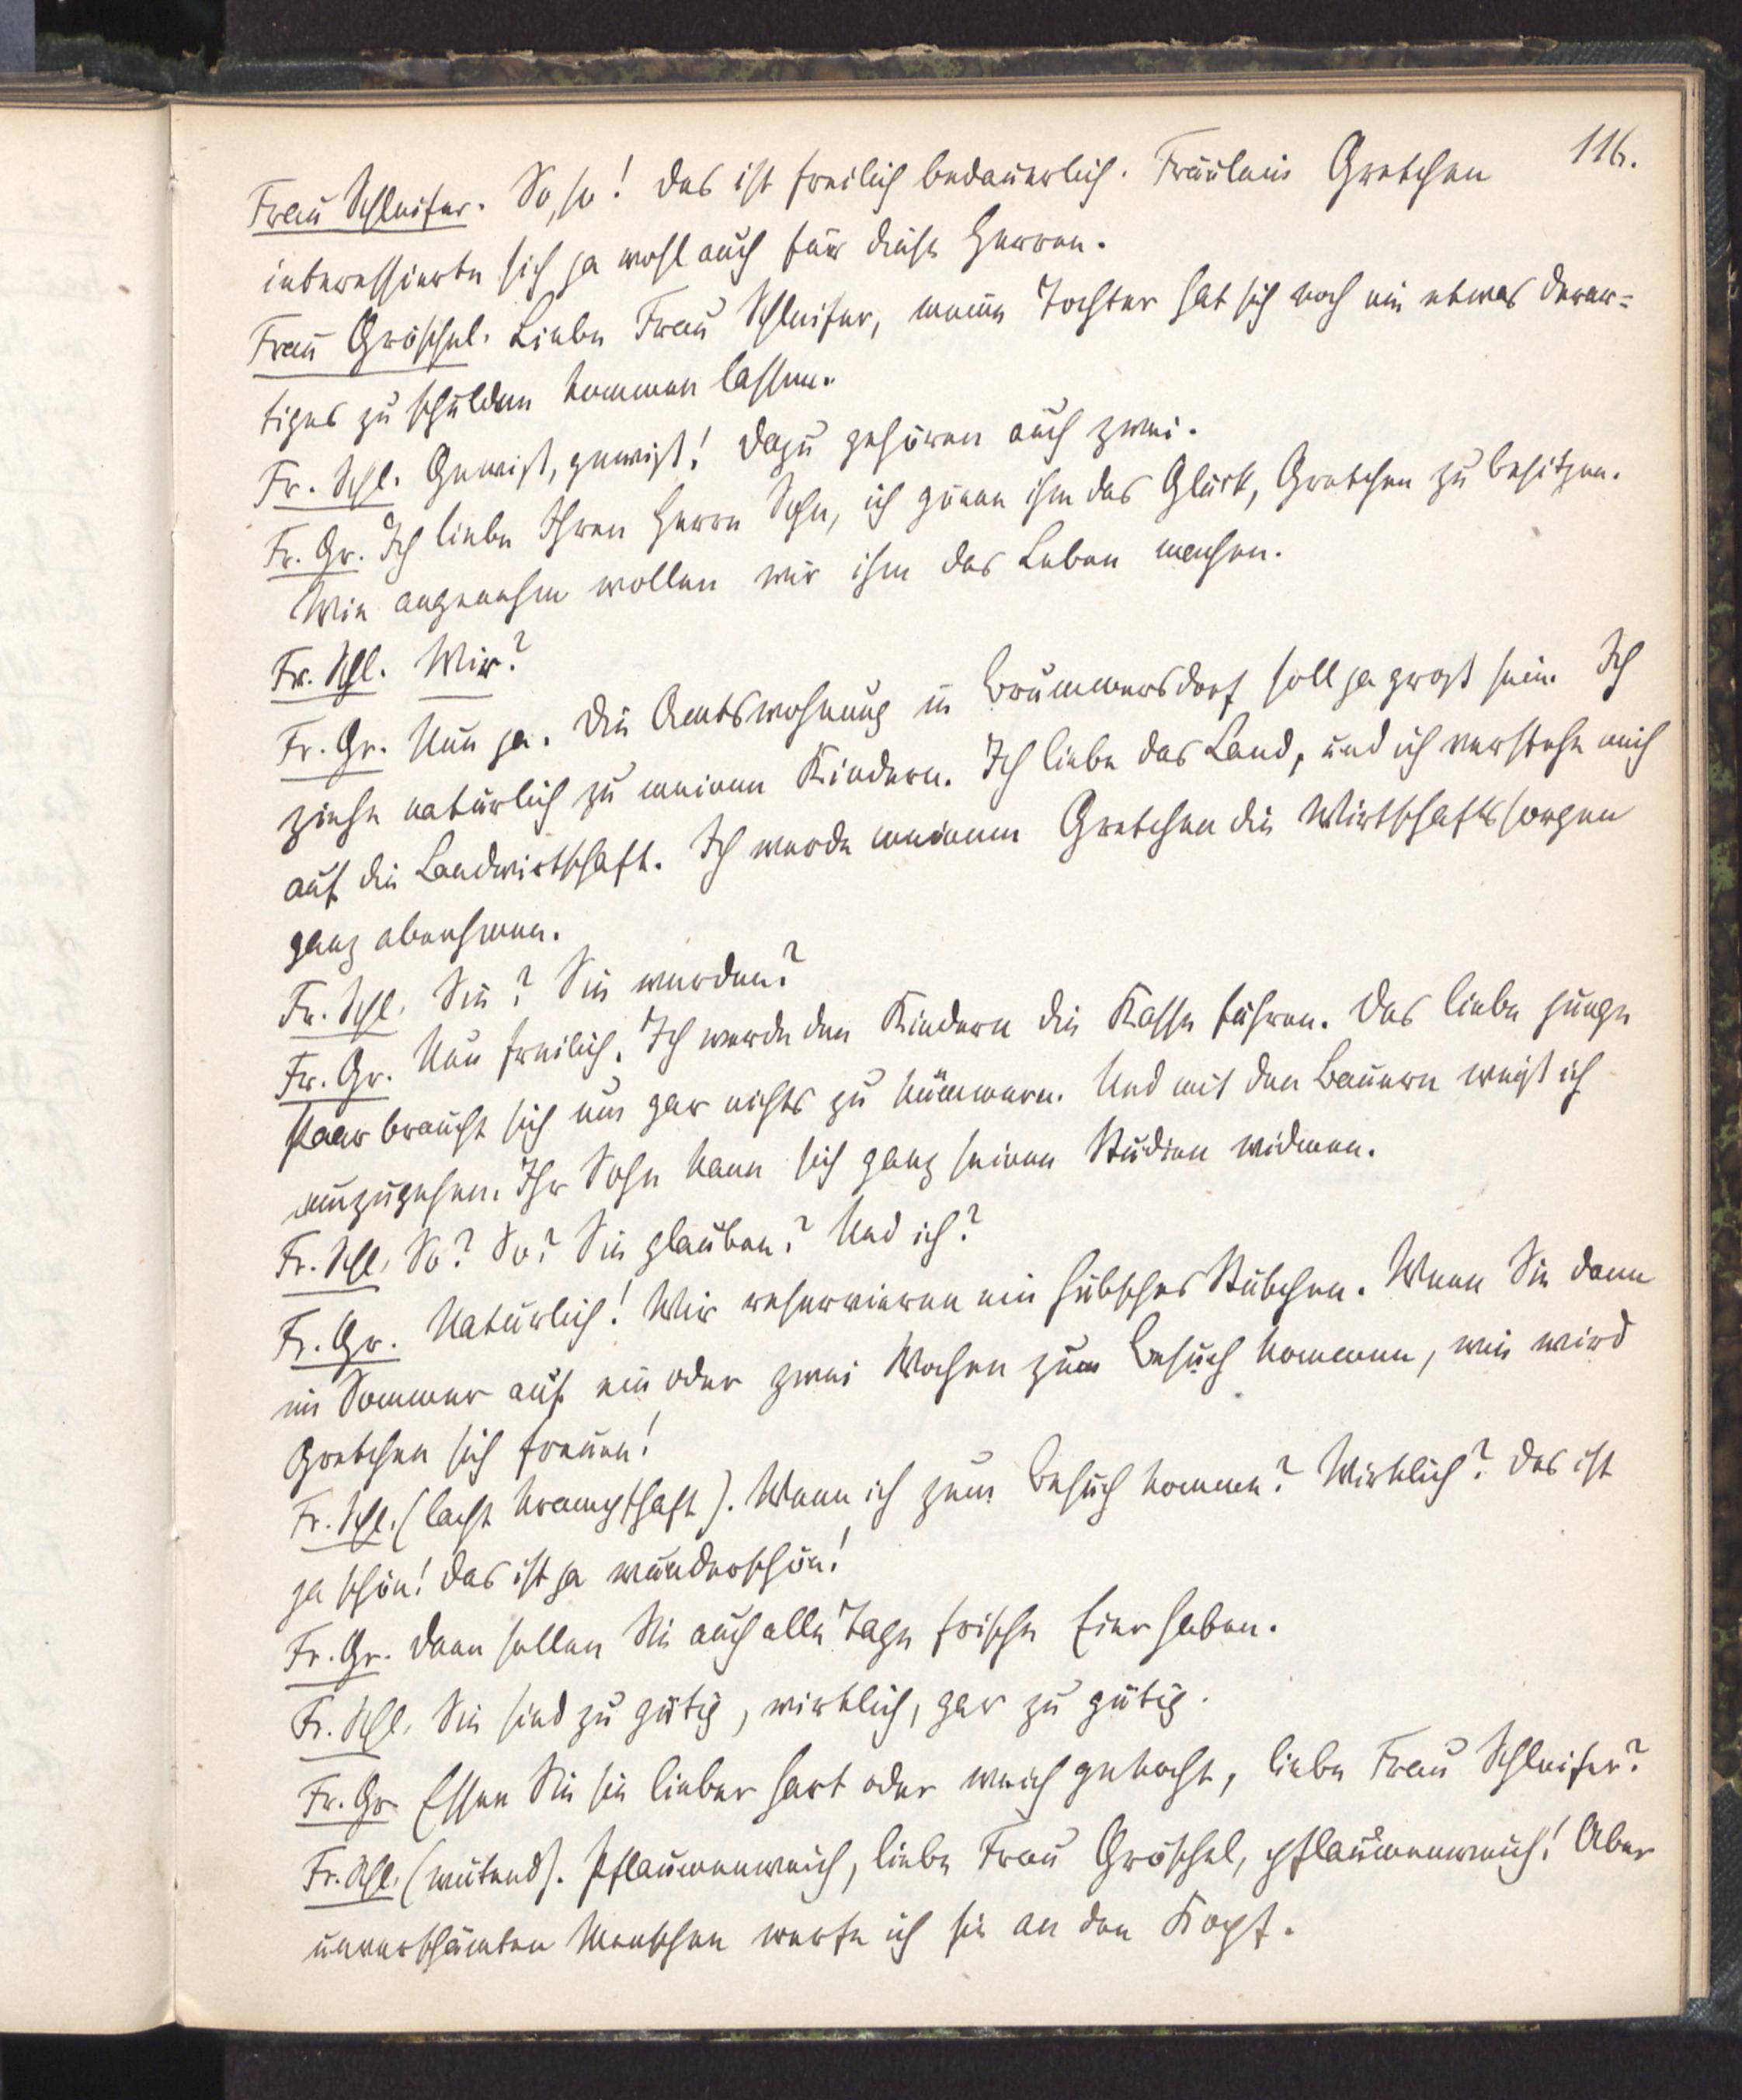 116.
Frau Schleifer. So, so! Das ist freilich bedauerlich. Fräulein Gretchen
interessierte sich ja wohl auch für diese Herren.
Frau Gröschel. Liebe Frau Schleifer, meine Tochter hat sich noch nie etwas derar-
tiges zu schulden kommen lassen.
Fr. Schl. Gewiß, gewiß! Dazu gehören auch zwei.
Fr. Gr. Ich liebe Ihren Herrn Sohn, ich gönne ihm das Glück, Gretchen zu besitzen.
Wie angenehm wollen wir ihm das Leben machen.
Fr. Schl. Wir?
Fr. Gr. Nun ja. Die Amtswohnung in Brummersdorf soll ja groß sein. Ich
ziehe natürlich zu meinen Kindern. Ich liebe das Land, und ich verstehe mich
auf die Landwirtschaft. Ich werde meinem Gretchen die Wirtschaftssorgen
ganz abnehmen.
Fr. Schl. Sie? Sie werden?
Fr. Gr. Nun freilich. Ich werde den Kindern die Kasse führen. Das liebe junge
Paar braucht sich um gar nichts zu kümmern. Und mit den Bauern weiß ich
umzugehen. Ihr Sohn kann sich ganz seinen Studien widmen.
Fr. Schl. So? So? Sie glauben? Und ich?
Fr. Gr. Natürlich! Wir reservieren ein hübsches Stübchen. Wenn Sie dann
im Sommer auf ein oder zwei Wochen zum Besuch kommen, wie wird
Gretchen sich freuen!
Fr. Schl. (lacht krampfhaft). Wenn ich zum Besuch komme? Wirklich? Das ist
ja schön! Das ist ja wunderschön!
Fr. Gr. Dann sollen Sie auch alle Tage frische Eier haben.
Fr. Schl. Sie sind zu gütig, wirklich, gar zu gütig.
Fr. Gr. Essen Sie sie lieber hart oder weich gekocht, liebe Frau Schleifer?
Fr. Schl. (wütend). Pflaumenweich, liebe Frau Gröschel, pflaumenweich! Aber
unverschämten Menschen werfe ich sie an den Kopf.